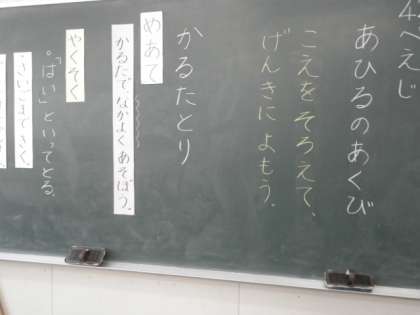 42ぺえじ
あひるのあくび
こえをそろえて、
げんきによもう。
かるたとり
めあて
かるたで、なかよくあそぼう。
やくそく
。「はい」といってとる。
・さいごまできく。